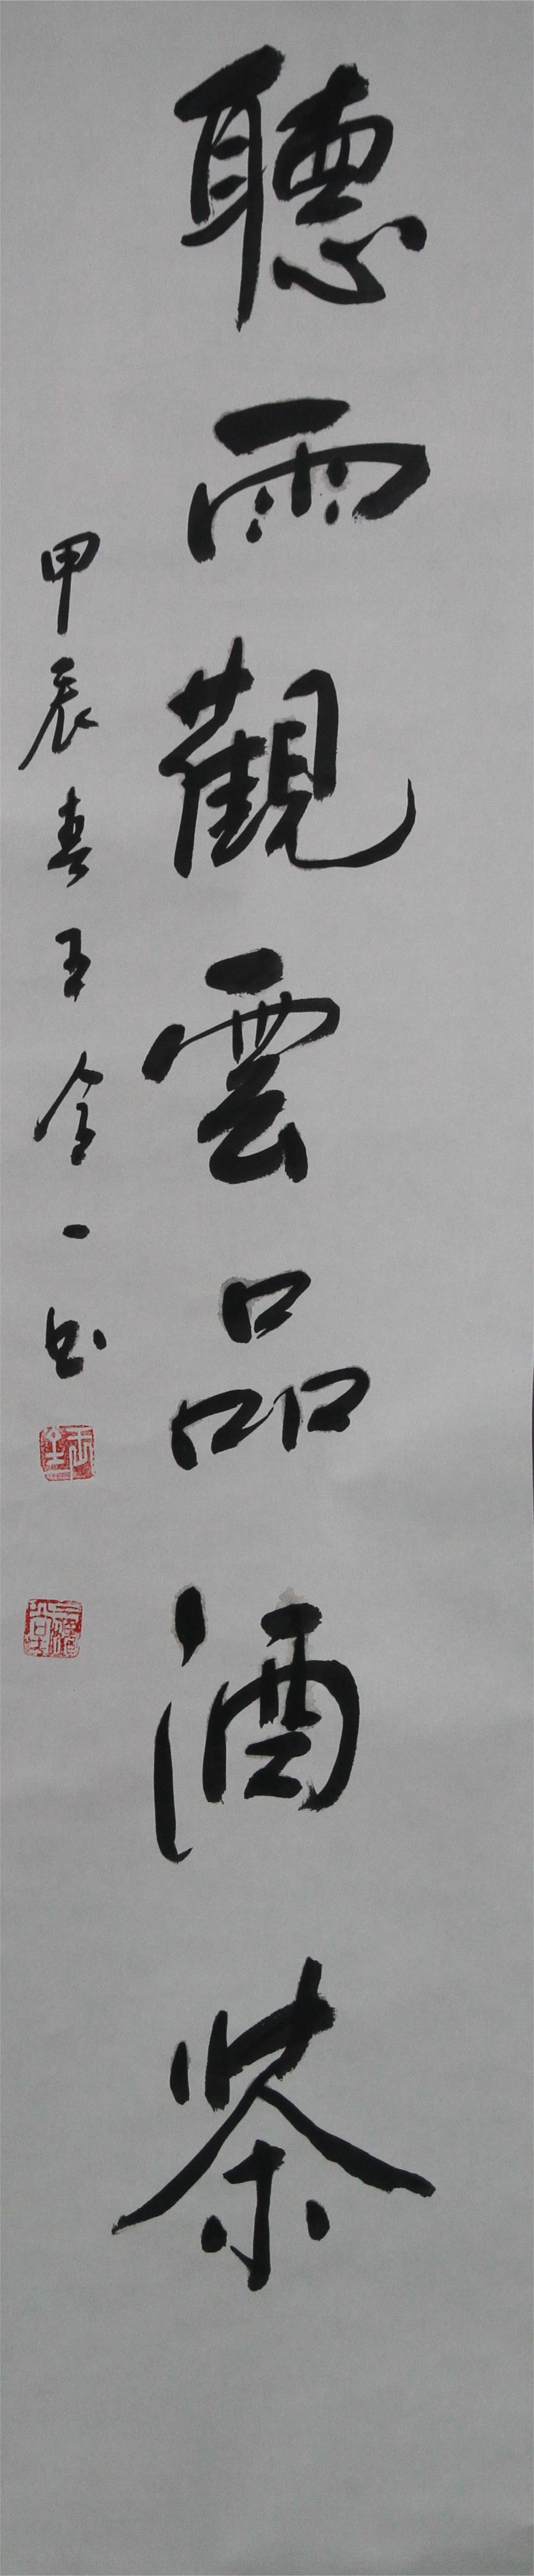 聽雨觀雲品酒茶
甲辰春王金一书